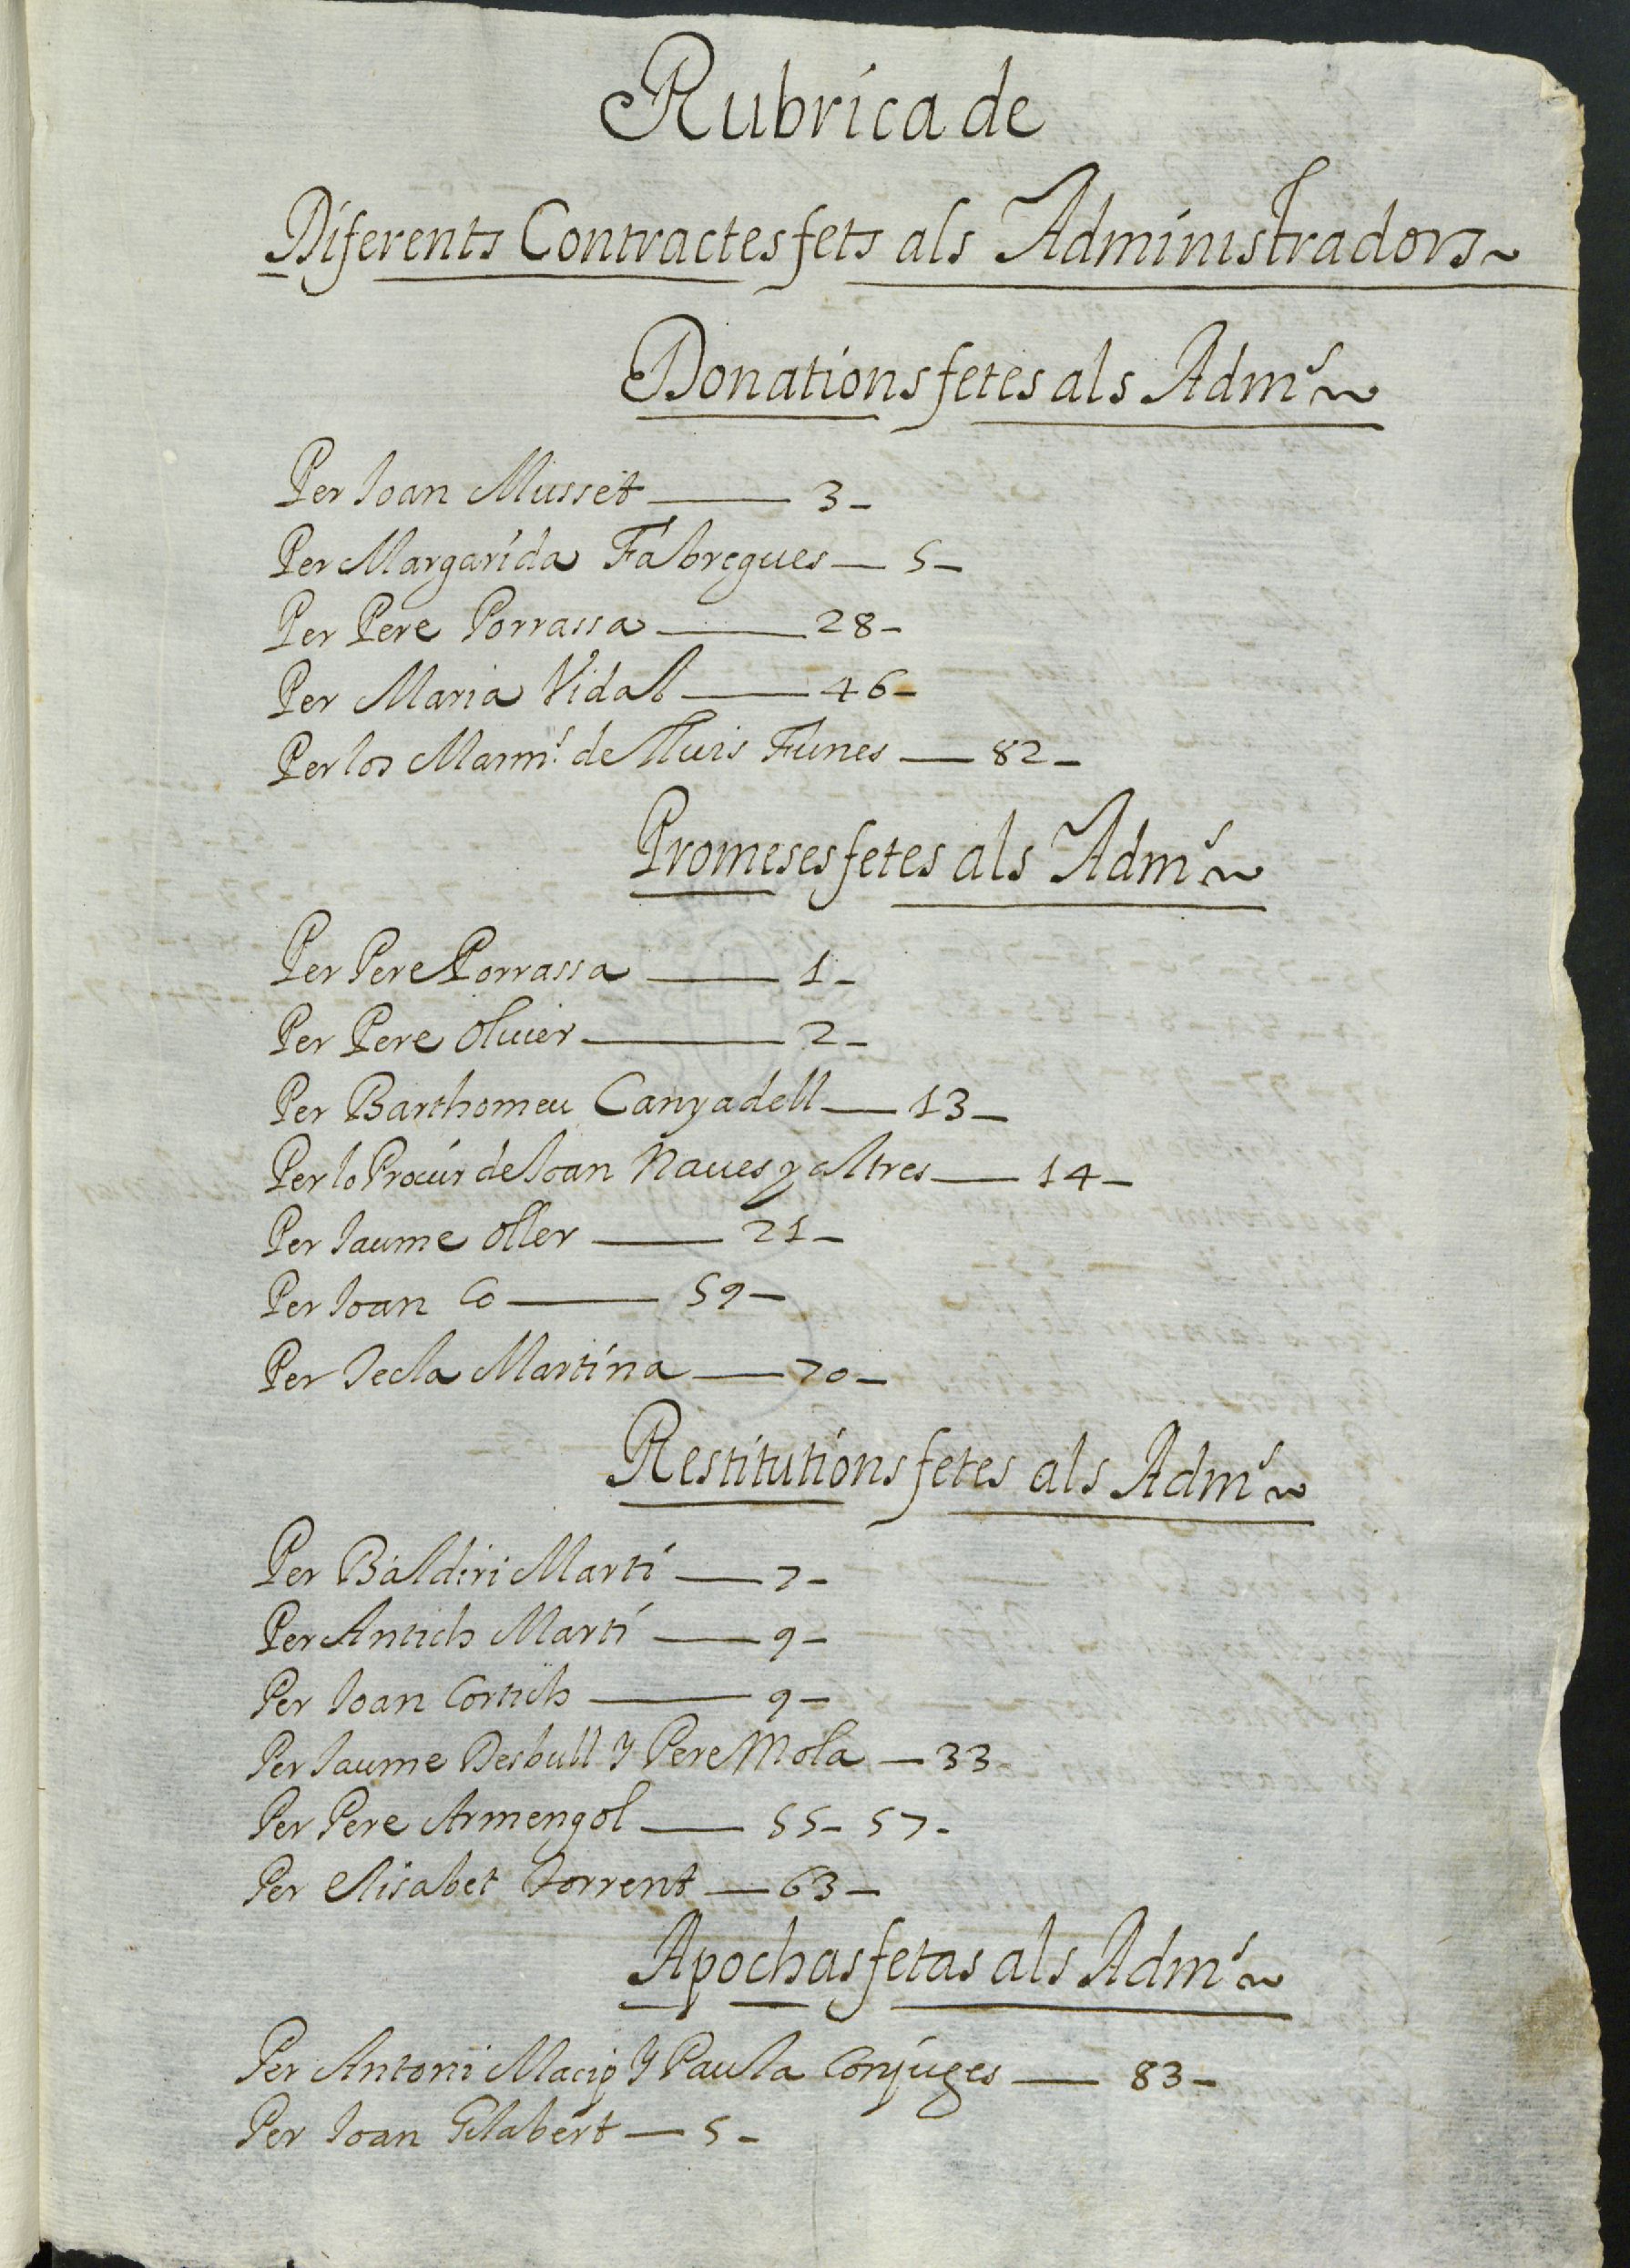 Rubrica de
Diferents Contractes fets als Administradors~
Donations fetes als Adm.s~
Per Ioan Musset — 3-
Per Margarida Fabregues — 5-
Per Pere Porrassa — 28-
Per Maria Vidal — 46-
Per los de Lluis Funes — 82-
Promeses fetes als Adm.s~
Per Pere Porrassa — 1-
Per Pere Oliuer — 2-
Per Barthomeu Canyadell — 13-
Per lo Procur de Ioan Naues y altres — 14-
Per Iaume Oller — 21-
Per Ioan Co — 59-
Per Tecla Martina — 70-
Restitutions fetes als Adm.s~
Per Baldiri Martí — 7-
Per Antich Martí — 9-
Per Ioan Cortich — 9-
Per Iaume Desbull y Pere Mola — 33-
Per Pere Armengol — 55- 57-
Per Elisabet Torrent — 63-
Apochas fetas als Adm.s~
Per Antoni Macip y Paula Conjuges — 83-
Per Ioan Gilabert — 5-